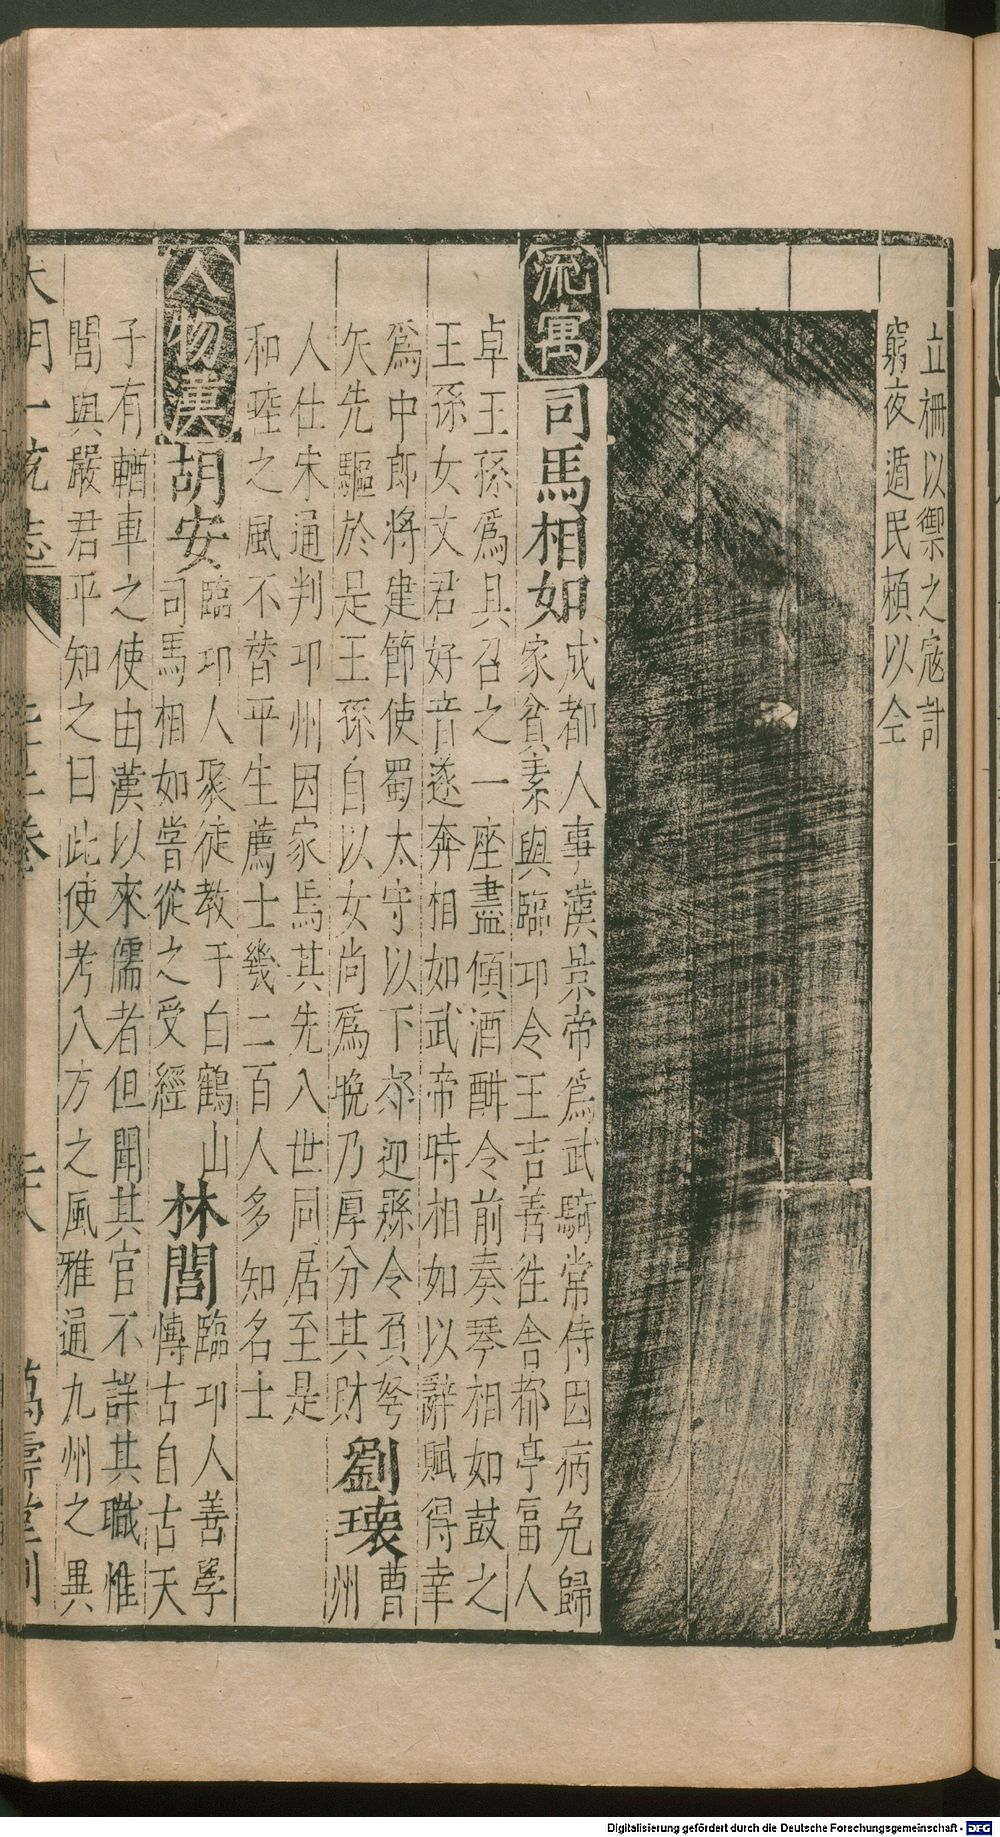 立柵以禦之寇計
窮夜遁民賴以全
流寓
司馬相如
成都人事漢景帝爲武騎常侍因病免歸
家貧素與臨邛令王吉善往舍都亭富人
卓王孫爲具召之一座盡傾酒酣令前奏琴相如鼓之
王孫女文君好音遂奔相如武帝時相如以辭賦得幸
爲中郎將建節使蜀太守以下郊迎縣令負弩
矢先驅於是王孫自以女尚爲晚乃厚分其財
劉瓌
曹
州
人仕宋通判邛州因家焉其先入世同居至是
和睦之風不替平生薦士幾二百人多知名士
人物漢
胡安
臨邛人聚徒教于白鶴山
司馬相如嘗從之受經
林閭
臨邛人善學
慱古自古天
子有輶車之使由漢以來儒者但聞其官不詳其職惟
閭與嚴君平知之曰此使考八方之風雅通九州之異
大明一統志
卷
萬壽堂刊
Digitalisierung gefördert durch die Deutsche Forschungsgemeinschaft - DFG